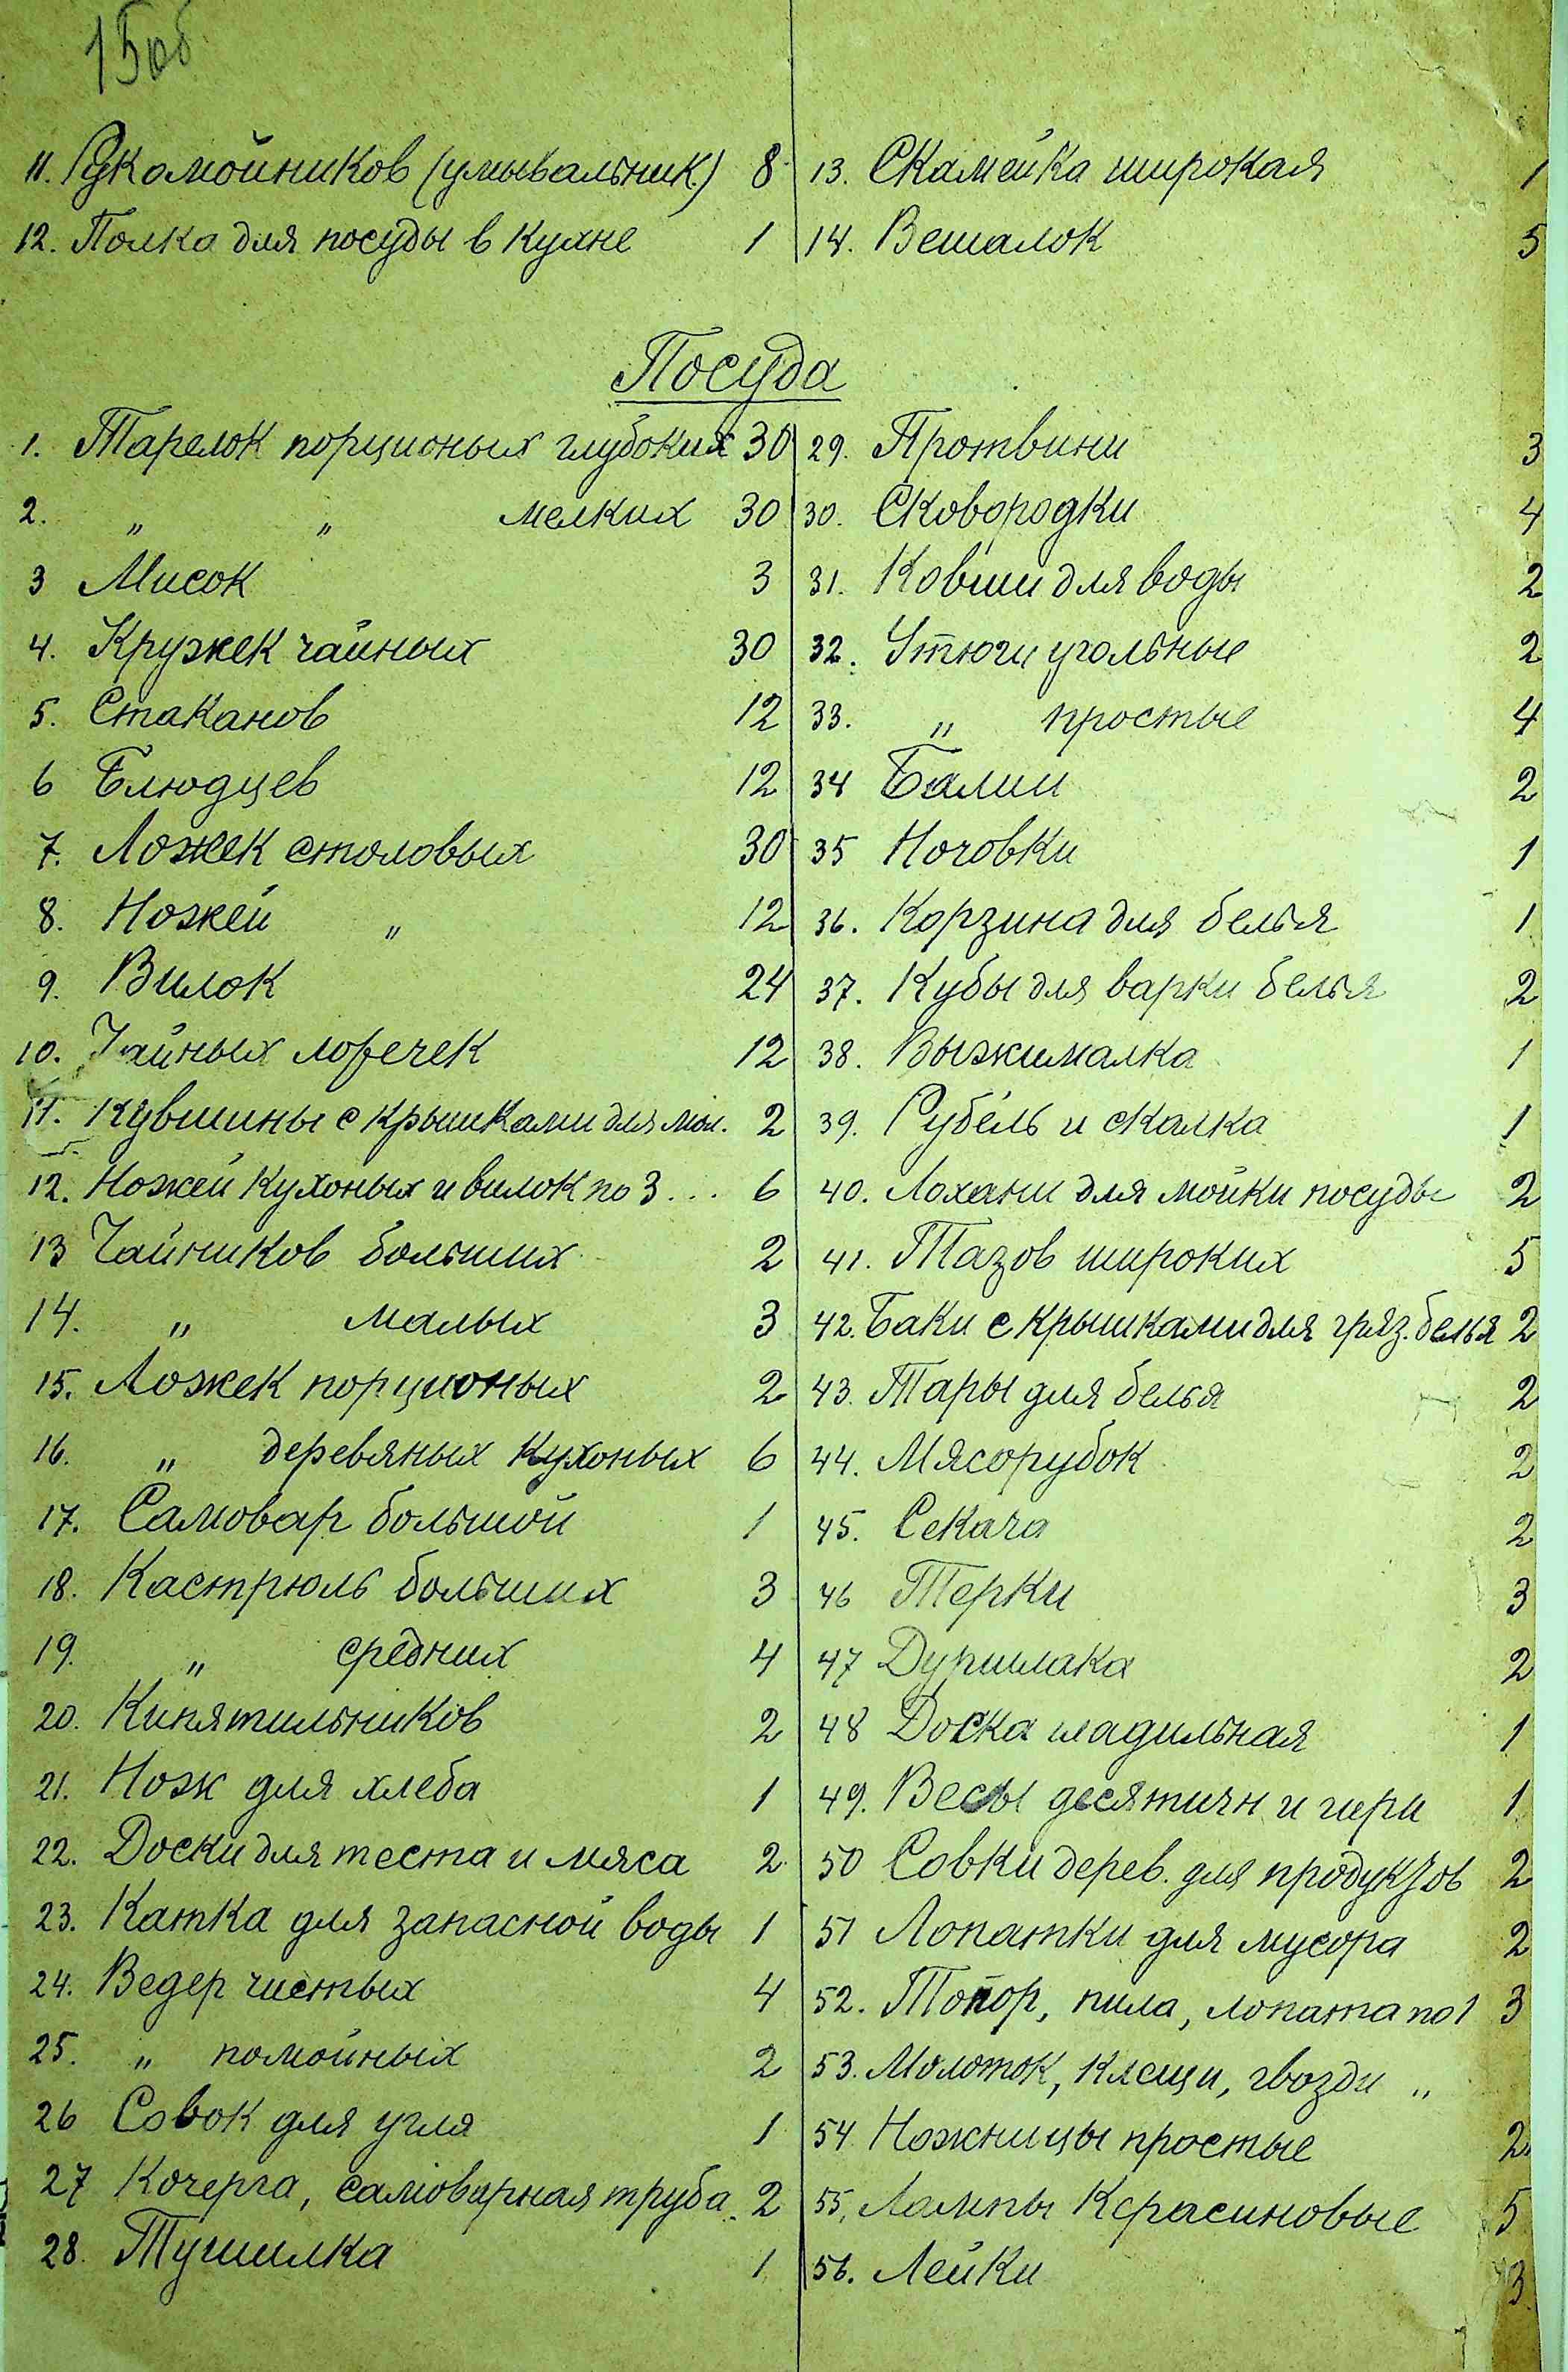 15об
11. Рукомойников (умывальник.) 8
12. Полка для посуды в кухне 1
13. Скамейка широкая 1
14. Вешалок 5
Посуда
1. Тарелок порционых глубоких 30
2. „ „ мелких 30
3 Мисок 3
4. Кружек чайных 30
5. Стаканов 12
6 Блюдцев 12
7. Ложек столовых 30
8. Ножей „ 12
9. Вилок 24
10. Чайных ложечек 12
11. Кувшины с крышками для мол. 2
12. Ножей кухоных и вилок по 3... 6
13 Чайников больших 2
14. „ малых 3
15. Ложек порционых 2
16. „ деревяных кухоных 6
17. Самовар большой 1
18. Кастрюль больших 3
19. „ средних 4
20. Кипятильников 2
21. Нож для хлеба 1
22. Доски для теста и мяса 2
23. Катка для запасной воды 1
24. Ведер чистых 4
25. „ помойных 2
26 Совок для угля 1
27 Кочерга, самоварная труба. 2
28. Тушилка 1
29. Протвини 3
30. Сковородки 4
31. Ковши для воды 2
32. Утюги угольные 2
33. „ простые 4
34 Балии 2
35 Ночовки 1
36. Корзина для белья 1
37. Кубы для варки белья 2
38. Выжималка 1
39. Рубель и скалка 1
40. Лохани для мойки посуды 2
41. Тазов широких 5
42. Баки с крышками для гряз. белья 2
43. Тары для белья 2
44. Мясорубок 2
45. Секача 2
46 Терки 3
47 Друшлака 2
48 Доска гладильная 1
49. Весы десятичн и гири 1
50 Совки дерев. для продуктов 2
51 Лопатки для мусора 2
52. Топор, пила, лопата по 1 3
53. Молоток, клещи, гвозди „
54 Ножницы простые 2
55. Лампы керасиновые 5
56. Лейки 3